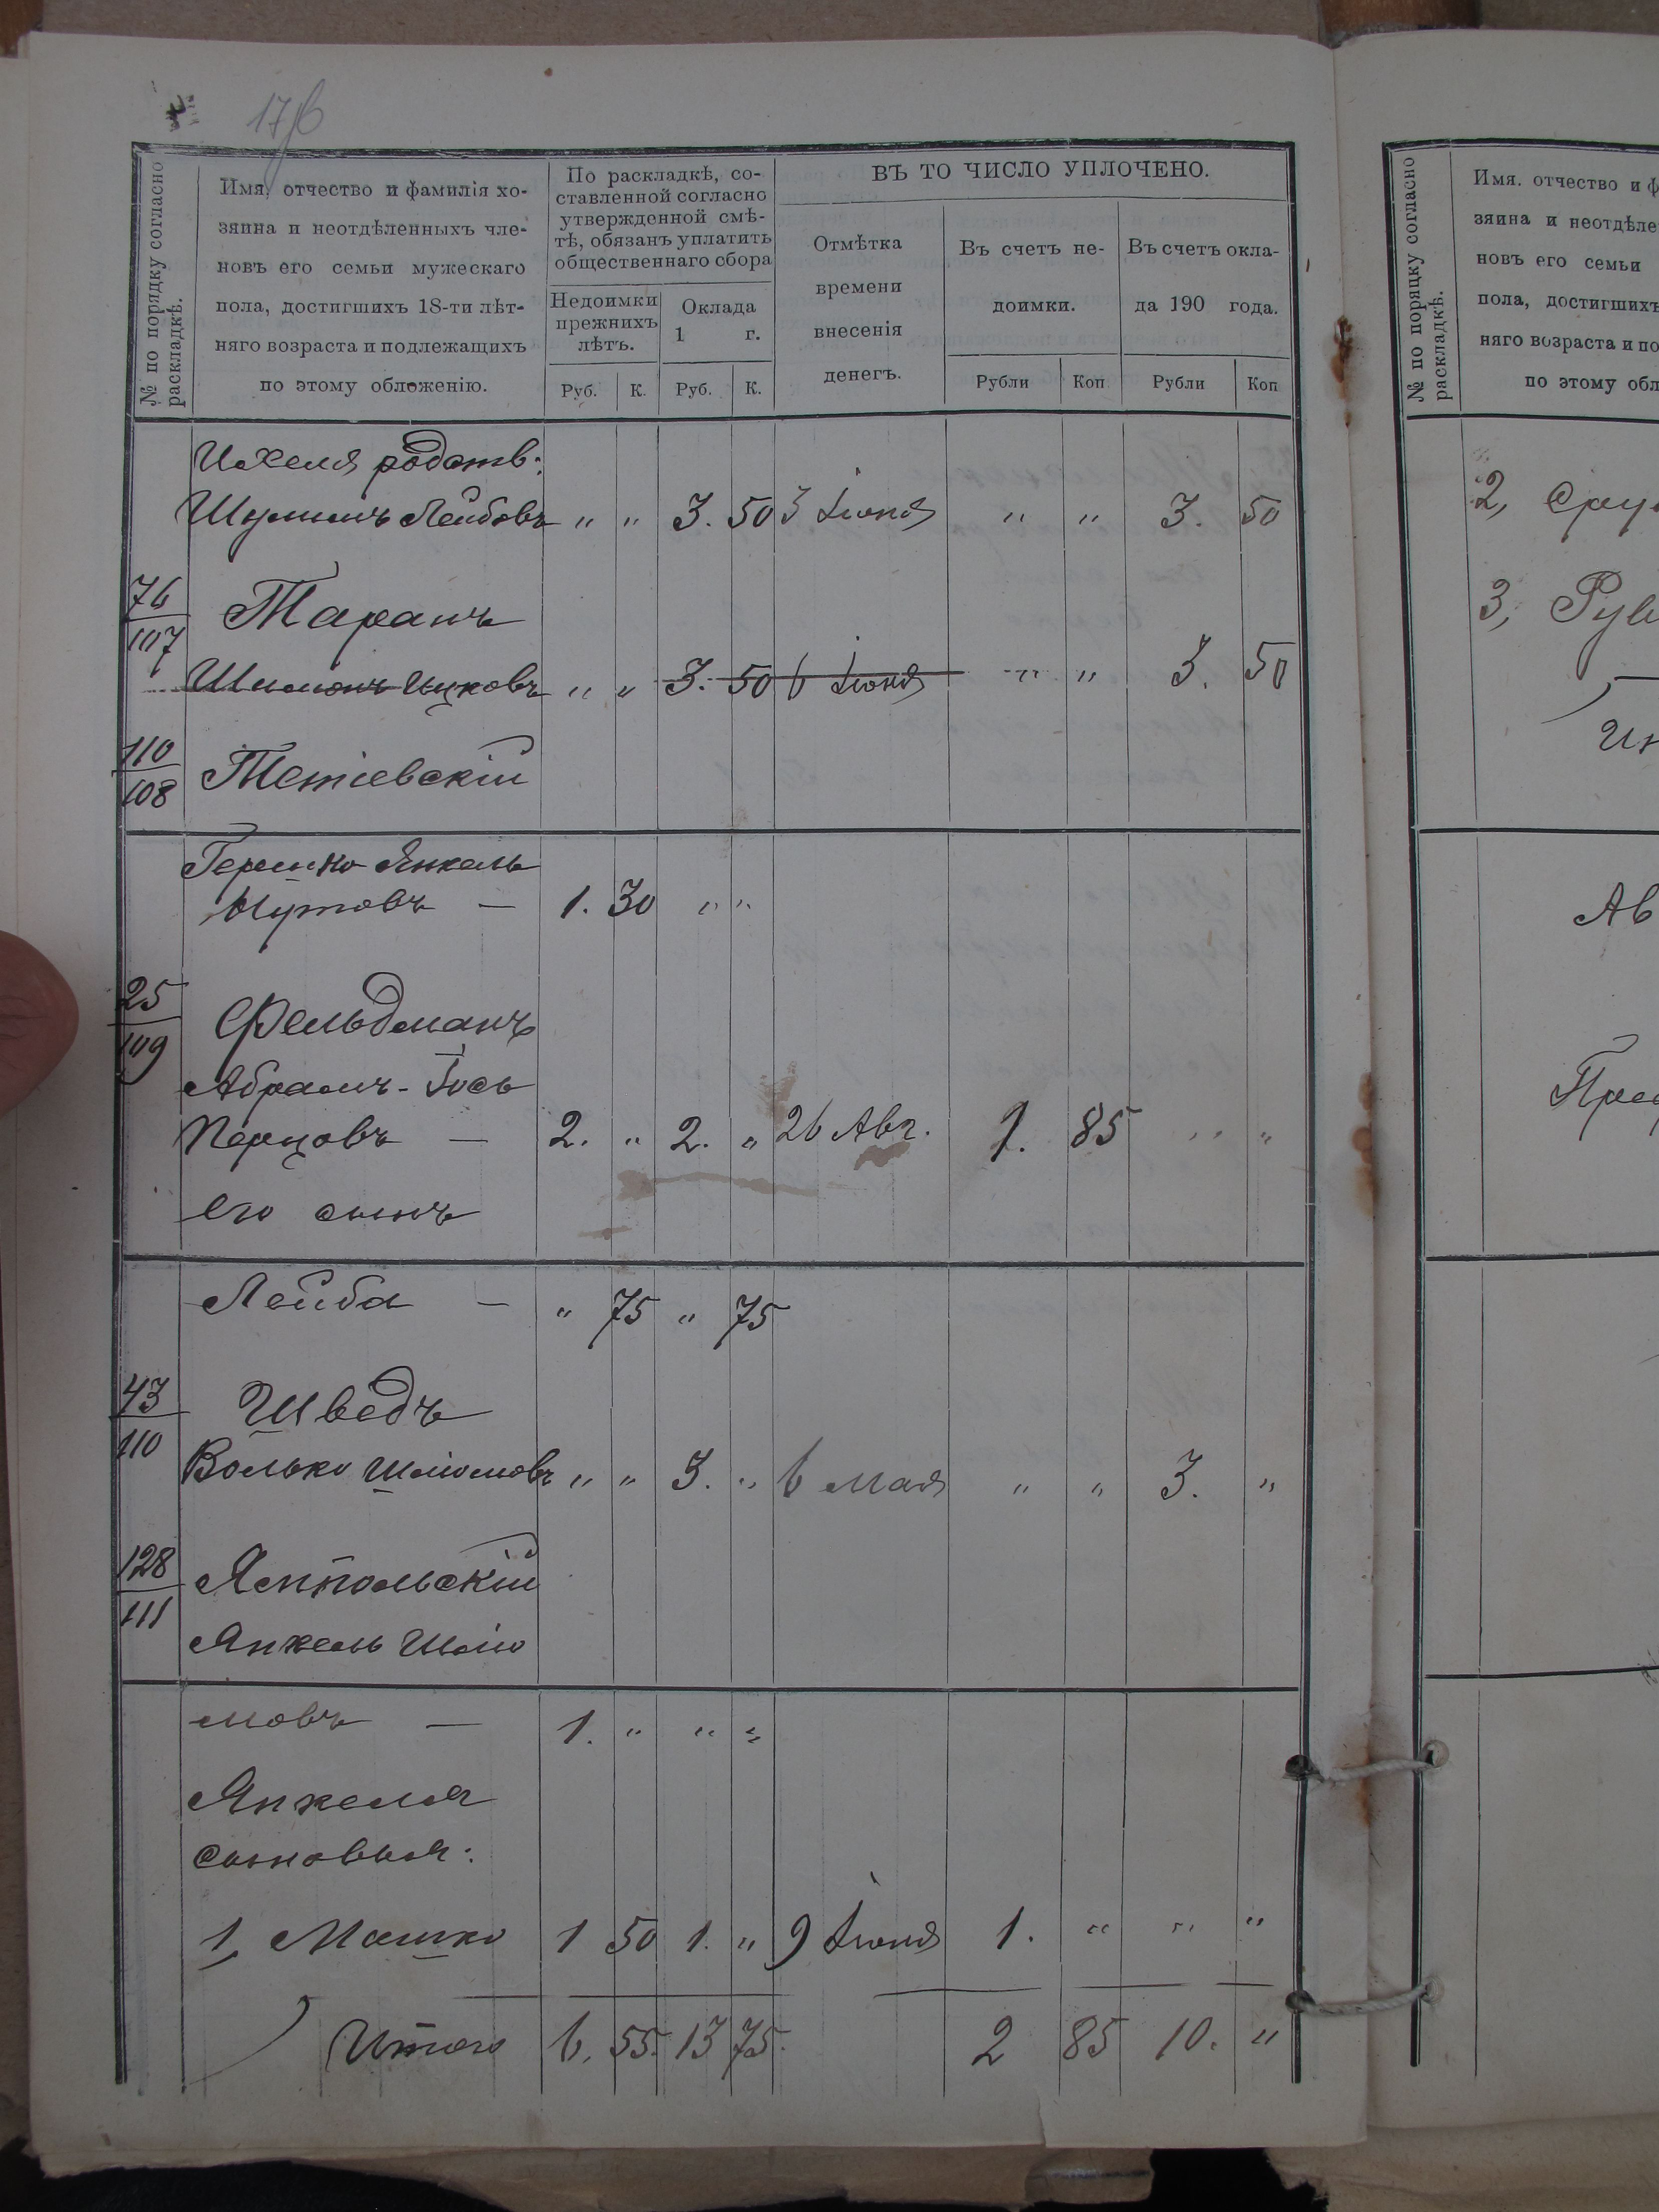 17/б
№ по порядку согласно раскладкѣ.
Имя, отчество и фамилія хо-
зяина и неотдѣленныхъ чле-
новъ его семьи мужескаго
пола, достигшихъ 18-ти лѣт-
няго возраста и подлежащихъ
по этому обложенію.
По раскладкѣ, со-
ставленной согласно
утвержденной смѣ-
тѣ, обязанъ уплатить
общественнаго сбора
Недоимки
прежнихъ
лѣтъ.
Оклада
1 г.
Руб. К. Руб. К.
ВЪ ТО ЧИСЛО УПЛОЧЕНО.
Отмѣтка
времени
внесенія
денегъ.
Въ счетъ не-
доимки.
Рубли Коп
Въ счетъ окла-
да 190 года.
Рубли Коп
Ихеля родств:
Шулимъ Лейбовъ " " 3. 50 3 Іюня " " 3. 50
76
107
Таранъ
Шимонъ Ицковъ " " 3. 50 6 Іюня " " 3. 50
110
108
Тетіевскій
Гершко Янкель
Нутовъ — 1. 30 " "
25
109
Фельдманъ
Абрамъ-Іось
Перцовъ — 2. " 2. " 26 Авг. 1. 85 " "
его сынъ
Лейба — " 75 " 75
43
110
Шведъ
Волько Шліомовъ " " 3. " 6 Мая " " 3. "
128
111
Ямпольскій
Янкель Шліо
мовъ — 1. " " "
Янкеля
сыновья:
1, Машко 1 50 1. " 9 Іюня 1. " " "
Итого 6. 55. 13 75. 2 85 10. "
№ по порядку согласно раскладкѣ.
Имя. отчество и ф
зяина и неотдѣле
новъ его семьи
пола, достигшихъ
няго возраста и по
по этому обл
2, Сру
3, Рув
Ит
Ав
Пре